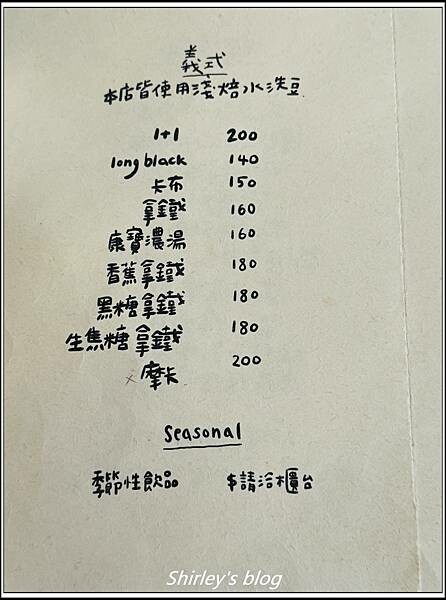 義式
本店皆使用淺焙水洗豆
1+1 200
long black 140
卡布 150
拿鐵 160
康寶濃湯 160
香蕉拿鐵 180
黑糖拿鐵 180
生焦糖拿鐵 180
x 摩卡 200
Seasonal
季節性飲品 $請洽櫃台
Shirley's blog